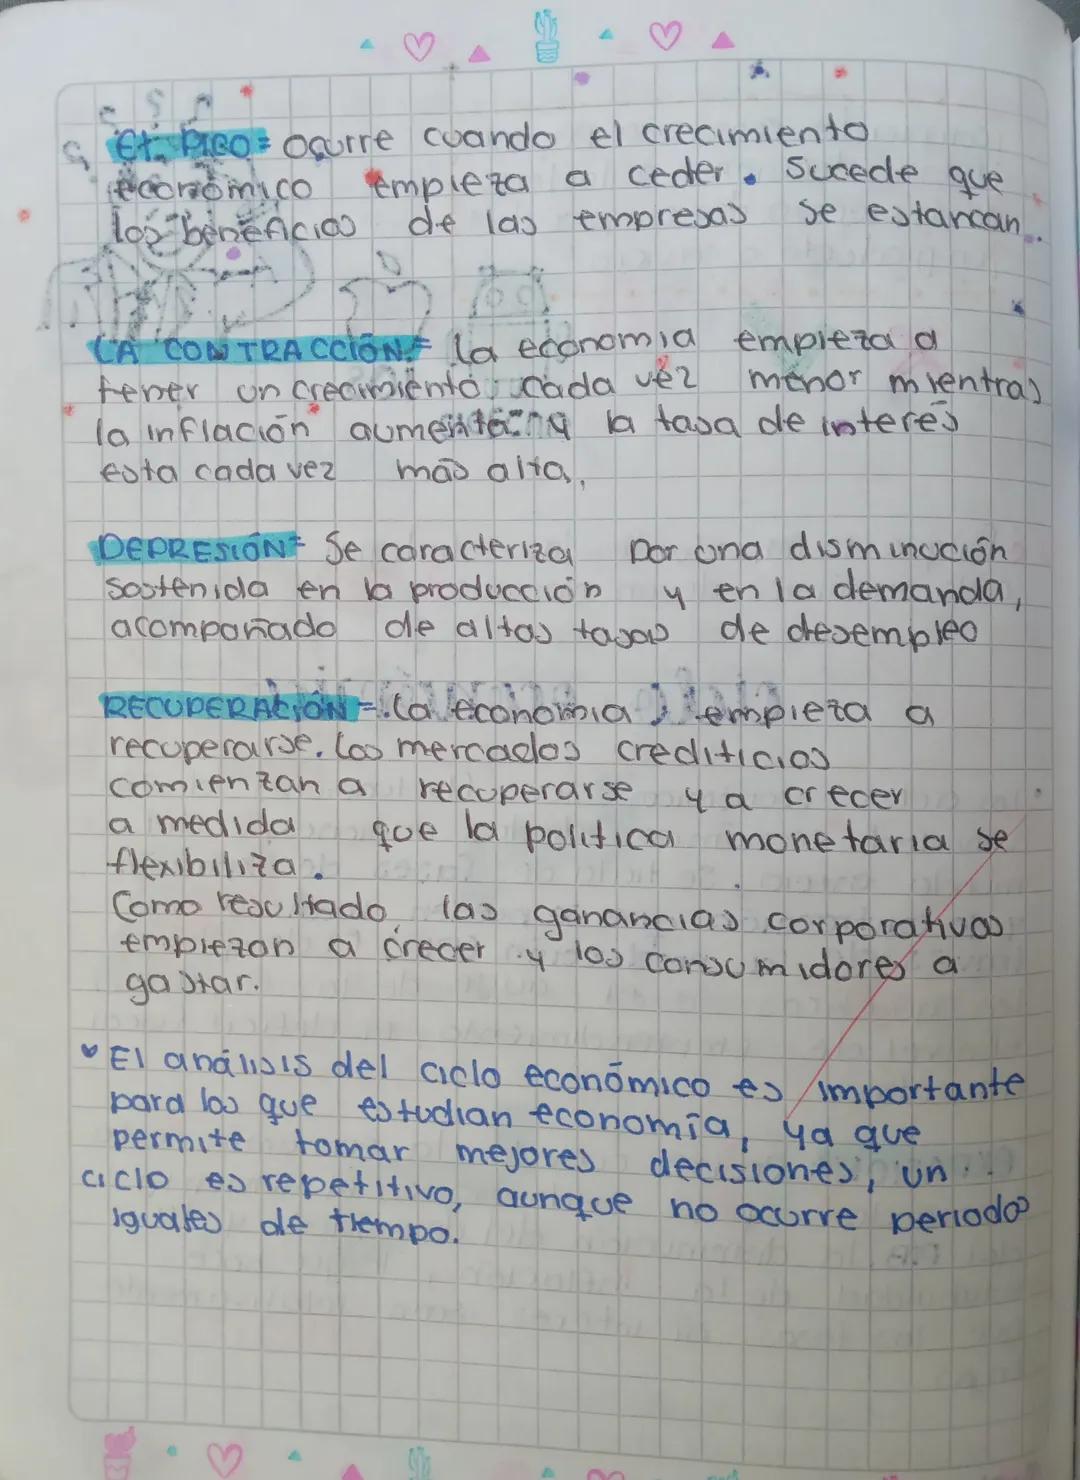 El PICO= ocurre cuando el crecimiento
económico empieza a ceder. Sucede que
los beneficios de las empresas se estancan.
LA CONTRACCIÓN= la economia empieza a
tener un crecimiento cada vez menor mientras
la inflación aumenta y la tasa de interés
esta cada vez más alta.
DEPRESIÓN= Se caracteriza por una disminución
sostenida en la producción y en la demanda,
acompañado de altas tasas de desempleo
RECUPERACIÓN= La economia, empieza a
recuperarse. Los mercados crediticios
comienzan a recuperarse y a crecer
a medida que la politica monetaria se
flexibiliza.
Como resultado las ganancias corporativas
empiezan a crecer y los consumidores a
gastar.
♥ El análisis del ciclo económico es importante
para los que estudian economía, ya que
permite tomar mejores decisiones, un
ciclo es repetitivo, aunque no ocurre periodos
iguales de tiempo.